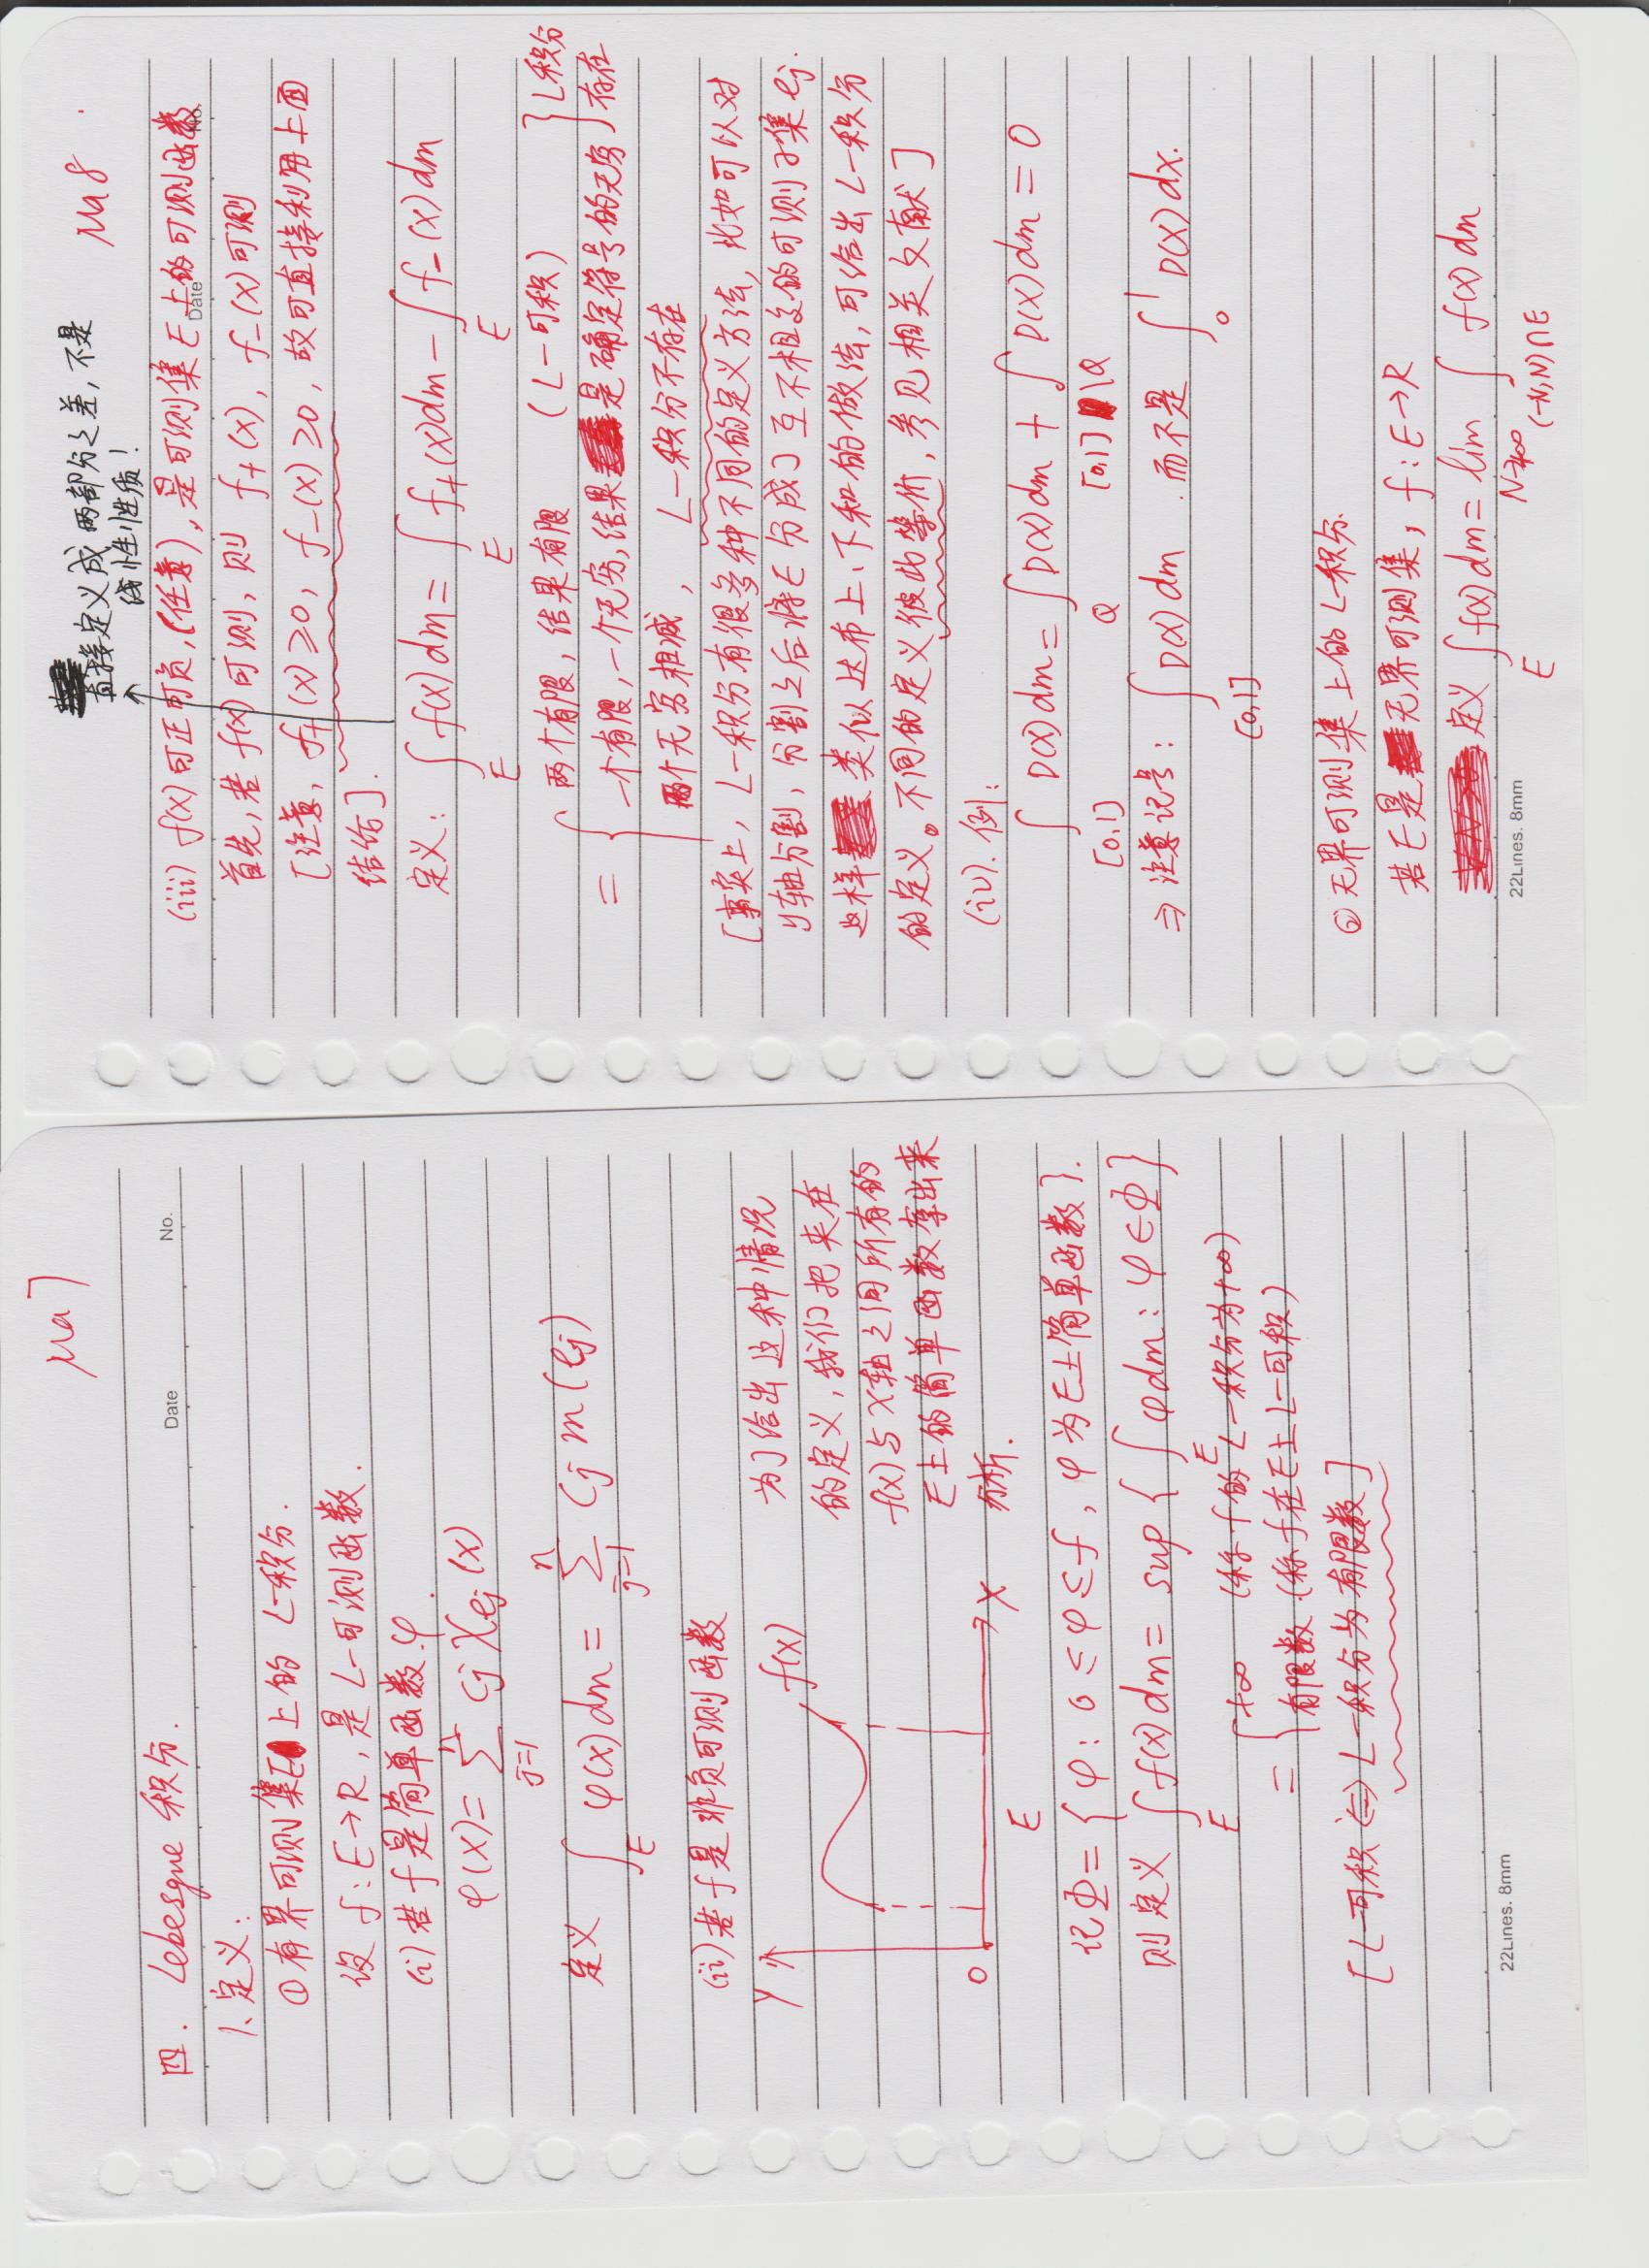 Ma 7
四. Lebesgue 积分.
Date No.
1、定义:
①有界可测集E上的 L-积分.
设 f: E→R, 是 L-可测函数.
(i)若f是简单函数φ.
φ(x)= Σ_{j=1}^{n} cj χej(x)
定义 ∫_E φ(x)dm = Σ_{j=1}^{n} cj m(ej)
(ii)若f是非负可测函数
y f(x) 0 E x
为了给出这种情况
的定义,我们把夹在
f(x)与x轴之间所有的
E上的简单函数拿出来
分析.
记Φ={φ: 0≤φ≤f, φ为E上简单函数}.
则定义 ∫_E f(x)dm = sup{∫_E φdm: φ∈Φ}
= { +∞ (称f的L-积分为+∞)
有限数 (称f在E上L-可积)
[L-可积 ⇔ L-积分为有限数]
22Lines. 8mm
直接定义成两部分之差,不是
线性性质!
Ma 8
(iii) f(x)可正可负,(任意),是可测集E上的可测函数
Date No.
首先,若f(x)可测,则 f+(x), f-(x)可测
[注意, f+(x)≥0, f-(x)≥0, 故可直接利用上面
结论].
定义: ∫_E f(x)dm = ∫_E f+(x)dm - ∫_E f-(x)dm
= { 两个有限,结果有限 (L-可积)
一个有限,一个无穷,结果是确定符号的无穷 } L积分存在
两个无穷相减, L-积分不存在
[事实上, L-积分有很多种不同的定义方法, 比如可以对
y轴分割, 分割之后将E分成了互不相交的可测子集ej.
这样类似达布上、下和的做法,可给出L-积分
的定义。不同的定义彼此等价,参见相关文献]
(iv). 例:
∫_{[0,1]} D(x)dm = ∫_Q D(x)dm + ∫_{[0,1]\Q} D(x)dm = 0
⇒ 注意记号: ∫_{[0,1]} D(x)dm . 而不是 ∫_0^1 D(x)dx.
② 无界可测集上的L-积分.
若E是无界可测集, f: E→R
定义 ∫_E f(x)dm = lim_{N→+∞} ∫_{(-N,N)∩E} f(x)dm
22Lines. 8mm